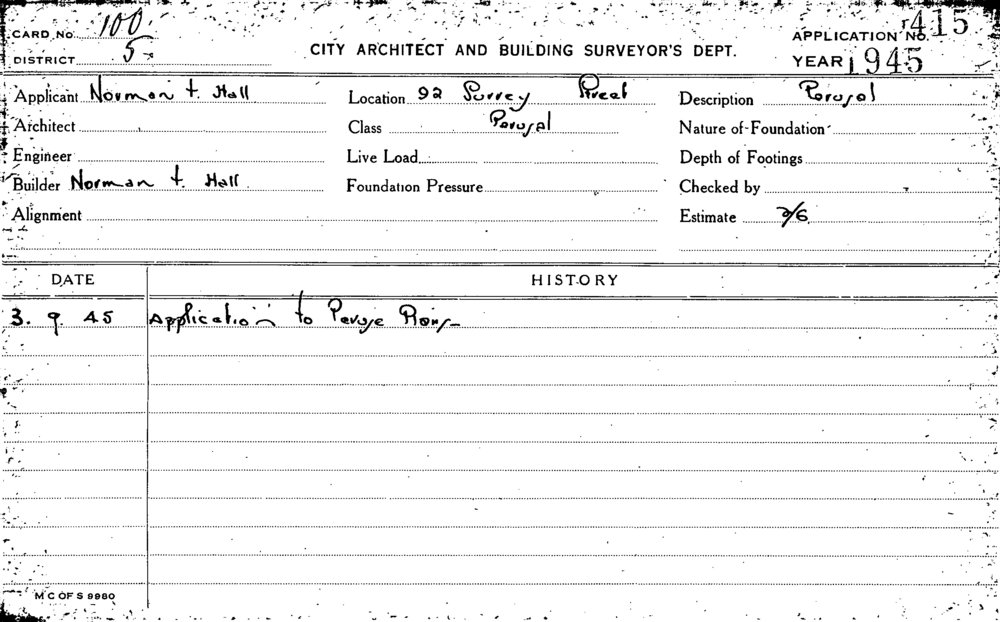 CARD NO. 100 APPLICATION NO. 415
DISTRICT 5 CITY ARCHITECT AND BUILDING SURVEYOR'S DEPT. YEAR 1945
Applicant Norman t. Hall Location 92 Surrey Street Description Perusal
Architect Class Perusal Nature of Foundation
Engineer Live Load Depth of Footings
Builder Norman t. Hall Foundation Pressure Checked by
Alignment Estimate 2/6
DATE HISTORY
3. 9. 45 Application to Peruse Plans
M C OF S 9980